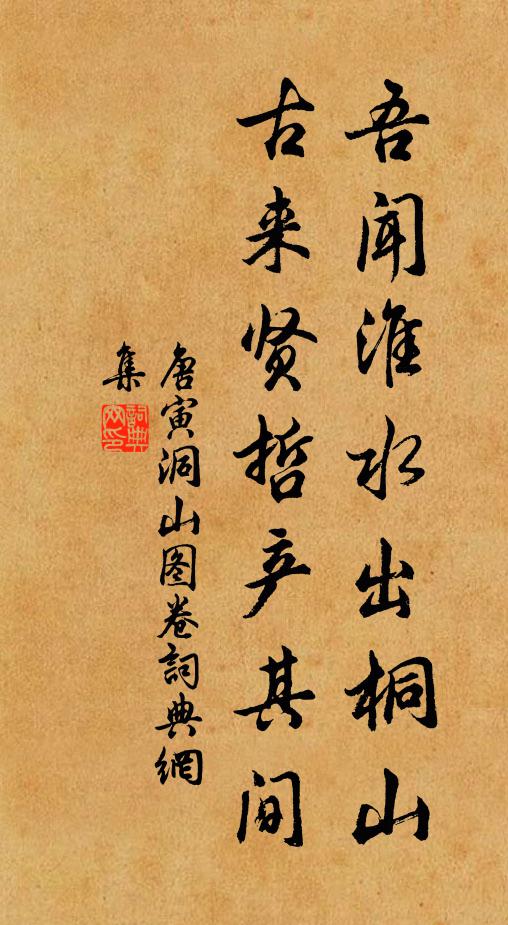 吾闻淮水出桐山
古来贤哲产其间
唐寅洞山图卷詞典網
集
詞典網印